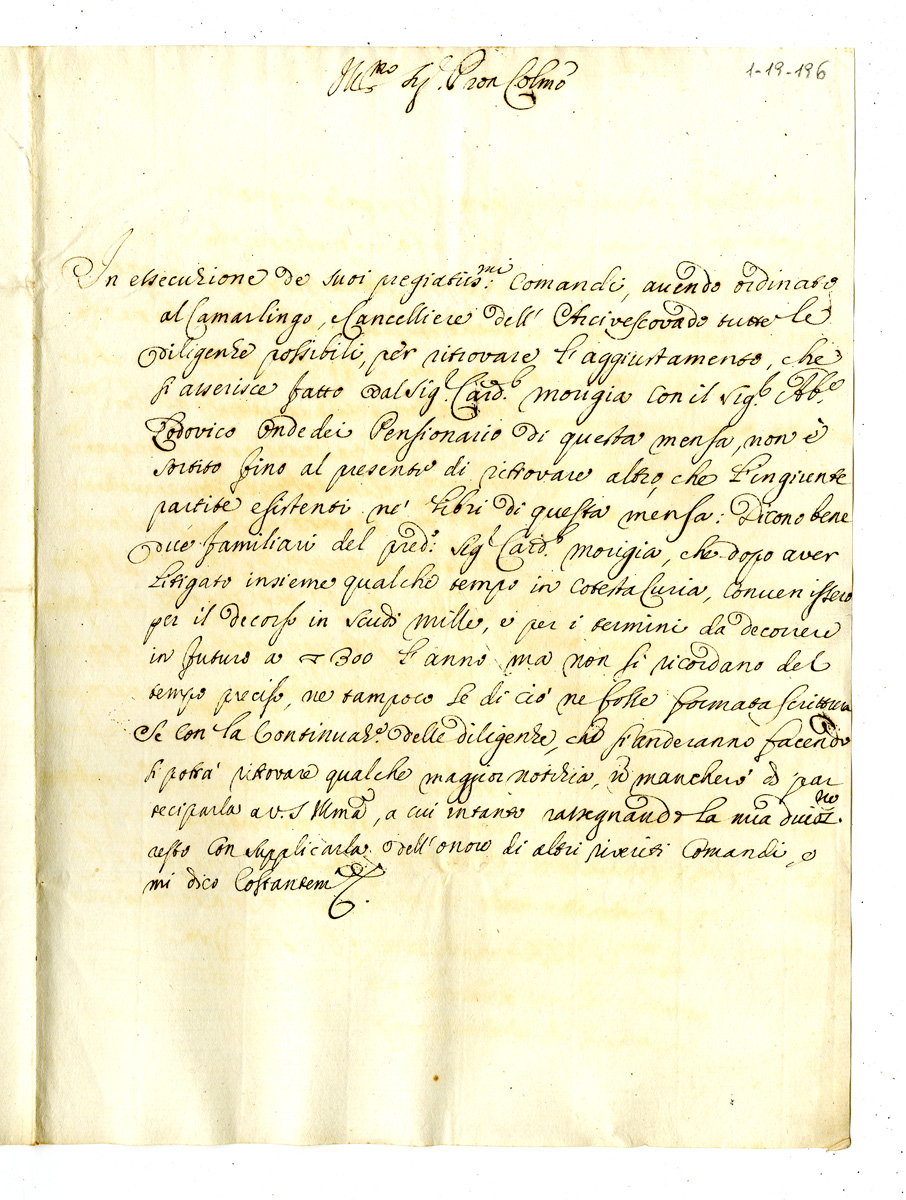 1-19-196
Ill.mo Sig.r Pron Colmo
In essecuzione de suoi pregiatiss.mi Comandi, avendo ordinato
al Camarlingo, e Cancelliere dell' Arcivescovado tutte le
diligenze possibili, per ritrovare l'aggiustamento, che
si asserisce fatto dal Sig.r Card.l Morigia con il Sig.r Ab.e
Lodovico Ondedei Pensionario di questa mensa, non è
sortito fino al presente di ritrovare altro, che l'ingiunte
partite esistenti ne' libri di questa mensa: Dicono bene
due familiari del pred.o Sig.r Card.l Morigia, che dopo aver
litigato insieme qualche tempo in cotesta Curia, convenissero
per il decorso in scudi mille, e per i termini da decorrere
in futuro a 300 l'anno ma non si ricordano del
tempo preciso, ne tampoco se di ciò ne fosse formata scrittura
Se con la Continuaz.e delle diligenze, che si anderanno facendo
si potrà ritrovare qualche maggior notizia, mancherò di par
teciparla a V.S Ill.ma, a cui intanto rassegnando la mia
resto con supplicarla dell'onore di altri riveriti Comandi, e
mi dico Costantem.e